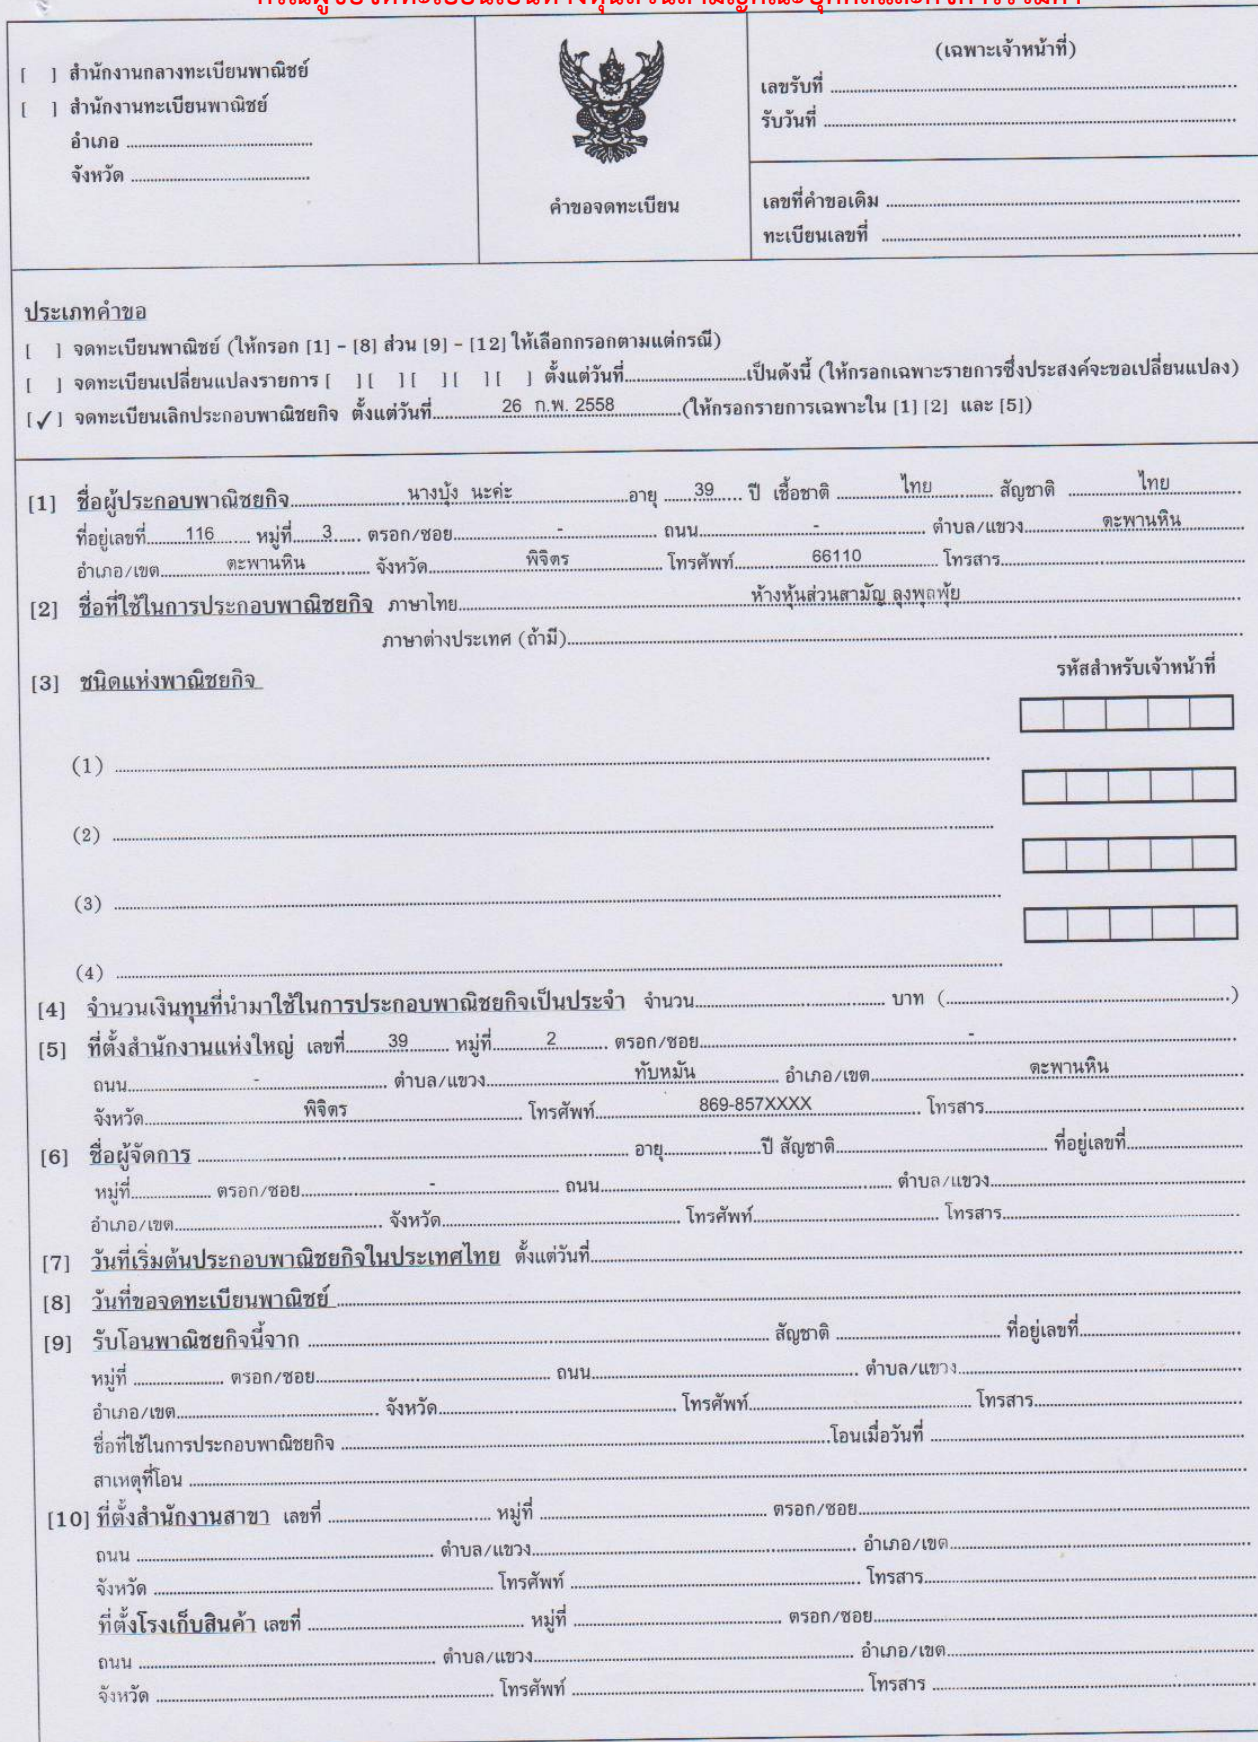 [ ] สำนักงานกลางทะเบียนพาณิชย์
[ ] สำนักงานทะเบียนพาณิชย์
อำเภอ ........................
จังหวัด ........................
คำขอจดทะเบียน
(เฉพาะเจ้าหน้าที่)
เลขรับที่ ........................
รับวันที่ ........................
เลขที่คำขอเดิม ........................
ทะเบียนเลขที่ ........................
ประเภทคำขอ
[ ] จดทะเบียนพาณิชย์ (ให้กรอก [1] - [8] ส่วน [9] - [12] ให้เลือกกรอกตามแต่กรณี)
[ ] จดทะเบียนเปลี่ยนแปลงรายการ [ ] [ ] [ ] [ ] ตั้งแต่วันที่............เป็นดังนี้ (ให้กรอกเฉพาะรายการซึ่งประสงค์จะขอเปลี่ยนแปลง)
[✓] จดทะเบียนเลิกประกอบพาณิชยกิจ ตั้งแต่วันที่......26 ก.พ. 2558......(ให้กรอกรายการเฉพาะใน [1] [2] และ [5])
[1] ชื่อผู้ประกอบพาณิชยกิจ......นางบุ้ง นะค่ะ......อายุ ...39... ปี เชื้อชาติ ...ไทย... สัญชาติ ...ไทย...
ที่อยู่เลขที่...116... หมู่ที่...3... ตรอก/ซอย...-... ถนน...-... ตำบล/แขวง...ตะพานหิน
อำเภอ/เขต...ตะพานหิน... จังหวัด...พิจิตร... โทรศัพท์...66110... โทรสาร......
[2] ชื่อที่ใช้ในการประกอบพาณิชยกิจ ภาษาไทย......ห้างหุ้นส่วนสามัญ ลุงพุฒพุ้ย......
ภาษาต่างประเทศ (ถ้ามี)............
[3] ชนิดแห่งพาณิชยกิจ
รหัสสำหรับเจ้าหน้าที่
(1) ............
(2) ............
(3) ............
(4) ............
[4] จำนวนเงินทุนที่นำมาใช้ในการประกอบพาณิชยกิจเป็นประจำ จำนวน............ บาท (............)
[5] ที่ตั้งสำนักงานแห่งใหญ่ เลขที่...39... หมู่ที่...2... ตรอก/ซอย...-...
ถนน...-... ตำบล/แขวง...ทับหมัน... อำเภอ/เขต...ตะพานหิน...
จังหวัด...พิจิตร... โทรศัพท์...869-857XXXX... โทรสาร......
[6] ชื่อผู้จัดการ ............ อายุ......ปี สัญชาติ............ ที่อยู่เลขที่............
หมู่ที่...... ตรอก/ซอย...-... ถนน............ ตำบล/แขวง............
อำเภอ/เขต............ จังหวัด............ โทรศัพท์............ โทรสาร............
[7] วันที่เริ่มต้นประกอบพาณิชยกิจในประเทศไทย ตั้งแต่วันที่............
[8] วันที่ขอจดทะเบียนพาณิชย์ ............
[9] รับโอนพาณิชยกิจนี้จาก ............ สัญชาติ ............ ที่อยู่เลขที่............
หมู่ที่ ...... ตรอก/ซอย............ ถนน............ ตำบล/แขวง............
อำเภอ/เขต............ จังหวัด............ โทรศัพท์............ โทรสาร............
ชื่อที่ใช้ในการประกอบพาณิชยกิจ ............โอนเมื่อวันที่ ............
สาเหตุที่โอน ............
[10] ที่ตั้งสำนักงานสาขา เลขที่ ............ หมู่ที่ ............ ตรอก/ซอย............
ถนน ............ ตำบล/แขวง............ อำเภอ/เขต............
จังหวัด ............ โทรศัพท์ ............ โทรสาร............
ที่ตั้งโรงเก็บสินค้า เลขที่ ............ หมู่ที่ ............ ตรอก/ซอย............
ถนน ............ ตำบล/แขวง............ อำเภอ/เขต............
จังหวัด ............ โทรศัพท์ ............ โทรสาร ............